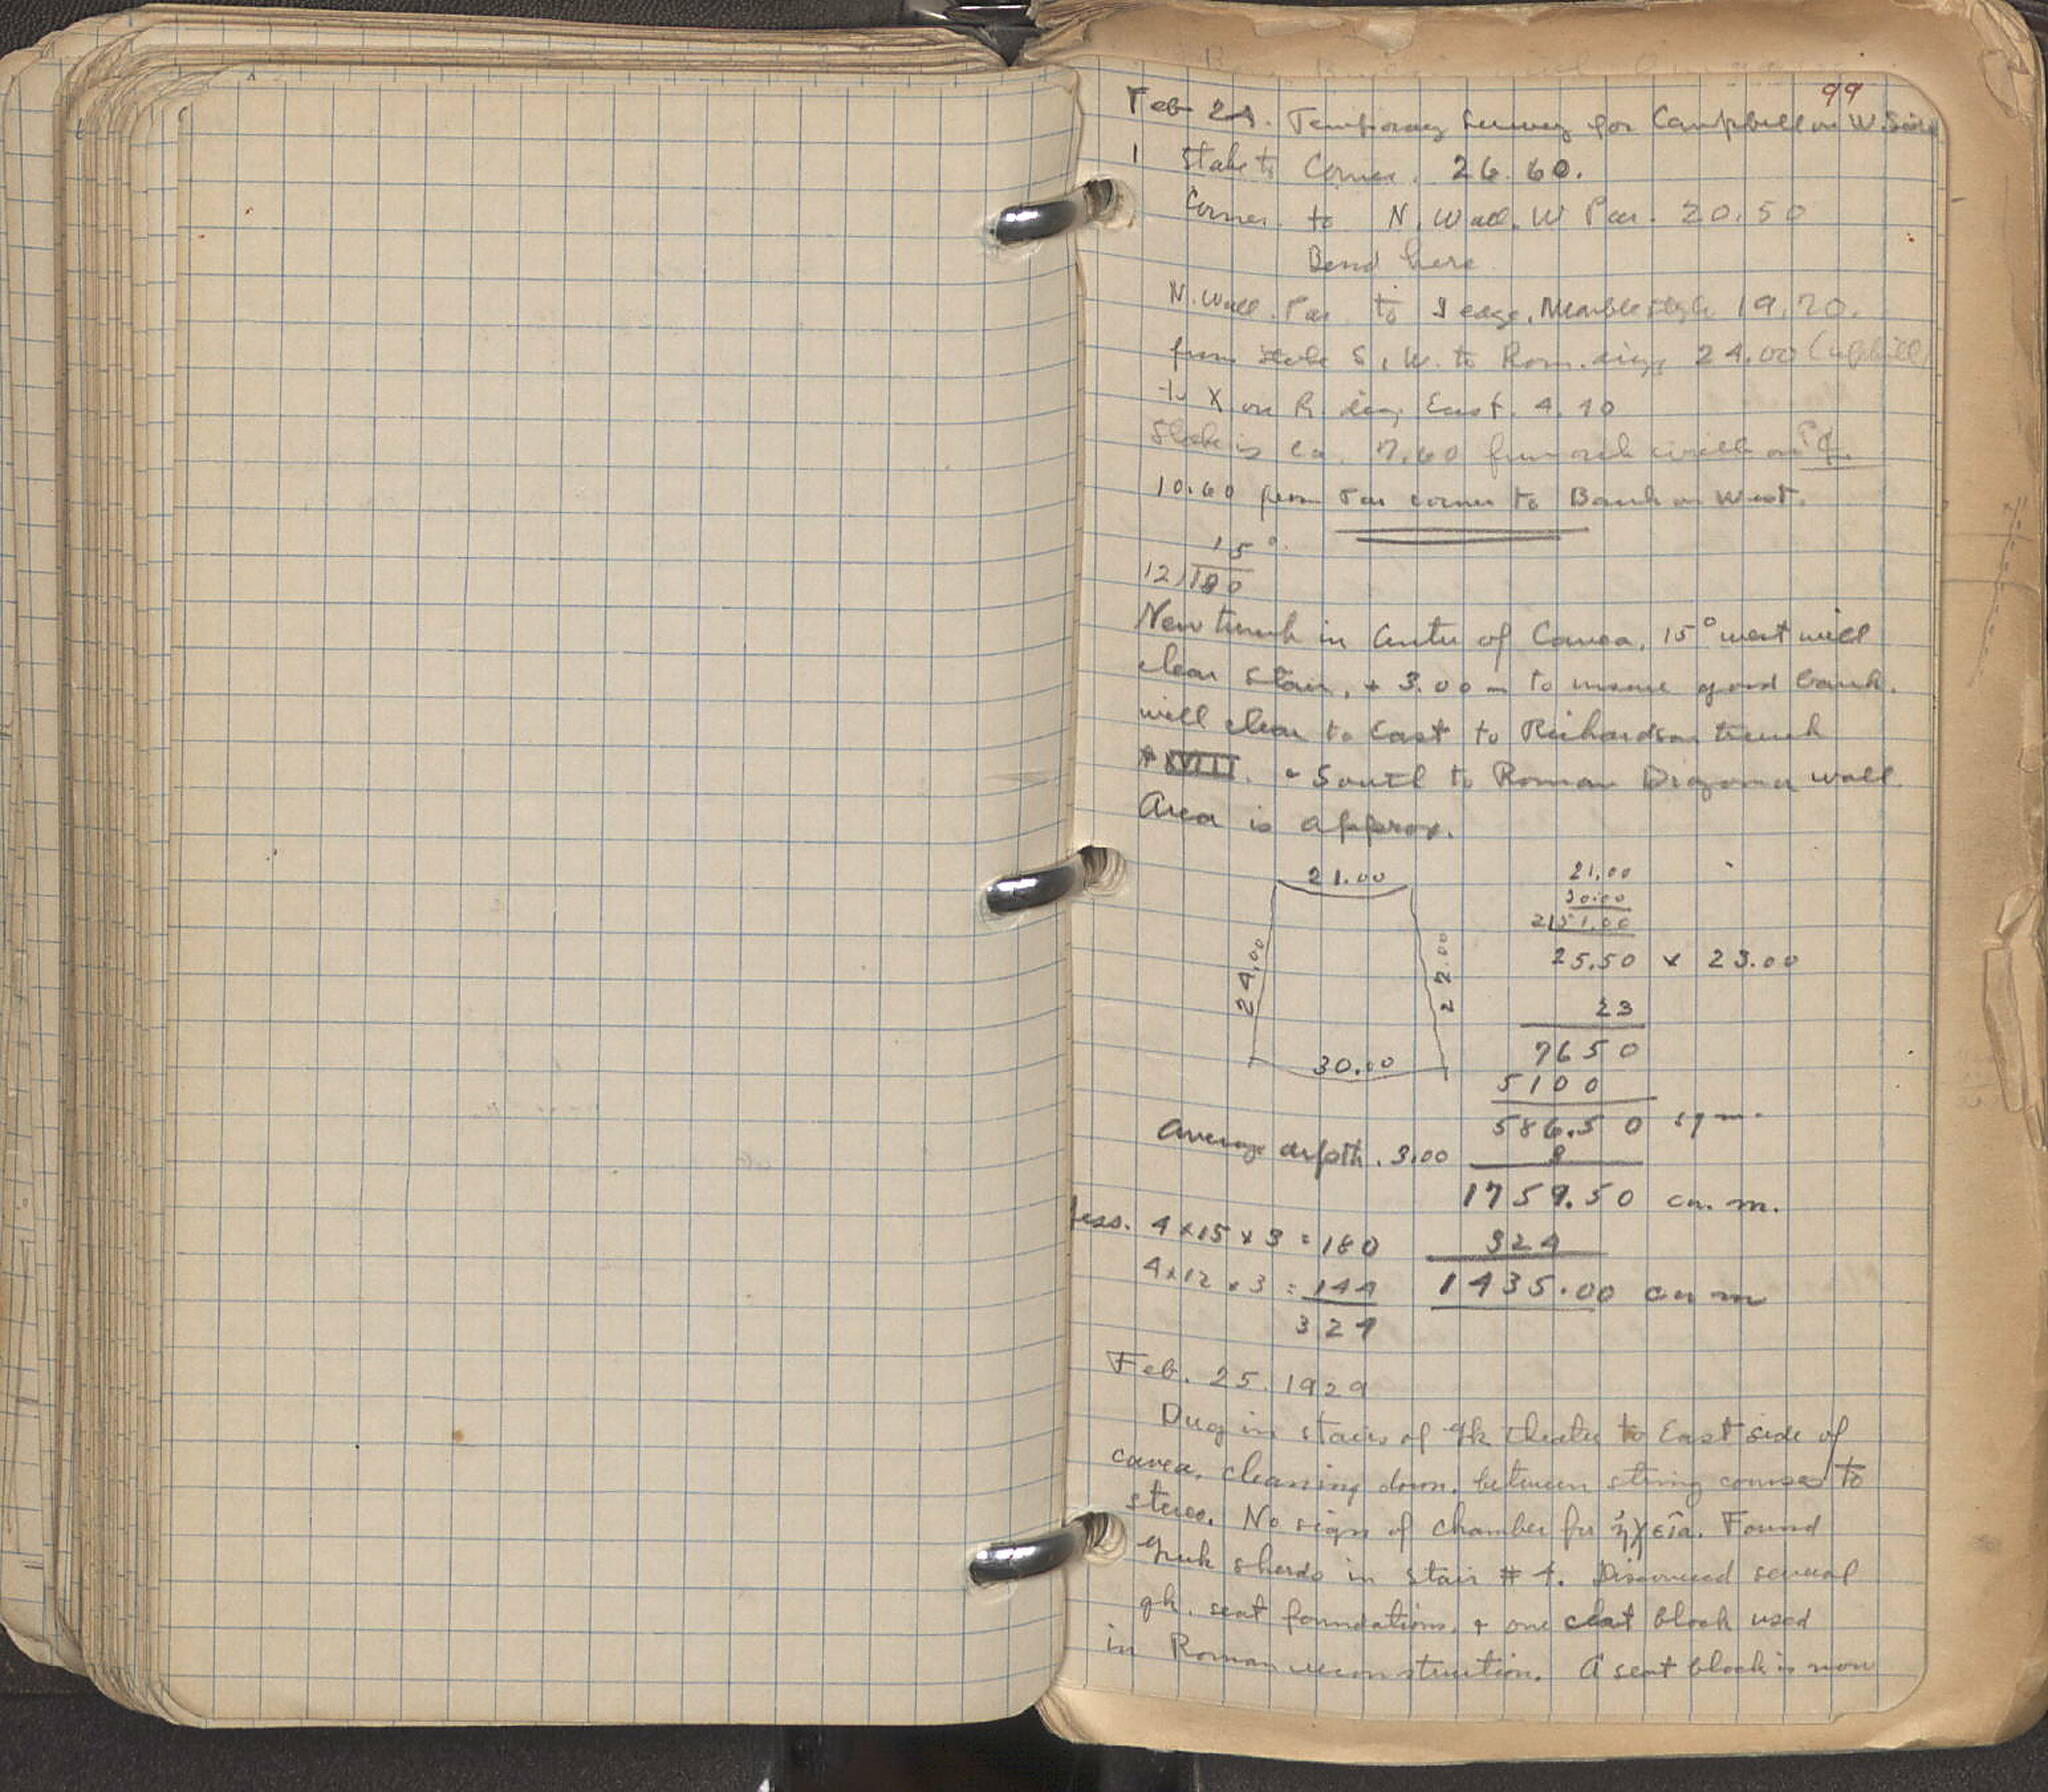 99
Feb 24. Temporary Survey for Campbell on W. Side
1 Stake to Corner. 26.60.
Corner to N. Wall. W Par. 20.50
Bend here
N. Wall. Par. to edge. Marble 19.70.
from stake S, W. to Rom. diaz. 24.00 (uphill)
to X on R. diaz. East. 4.40
Stake is ca. 7.60 from on
10.60 from Par corner to Bank on West.
15°
12)180
New trench in Center of Cavea. 15° west will
clear stair, + 3.00 m to insure good bank.
will clear to East to Richardson trench
# XVIII. + South to Roman Diazoma wall
Area is approx.
21.00
24.00
22.00
30.00
21.00
30.00
2)51.00
25.50 x 23.00
23
7650
5100
586.50 sq m.
Average depth. 3.00
3
1759.50 cu. m.
less. 4 x 15 x 3 = 180
324
4 x 12 x 3 = 144
1435.00 cu m
324
Feb. 25. 1929
Dug in stairs of Gk theatre to East side of
cavea, cleaning down, between string courses to
stereo. No sign of chamber for ἠχεῖα. Found
Greek sherds in stair # 4. Discovered several
gk. seat foundations, + one seat block used
in Roman reconstruction. A seat block is now